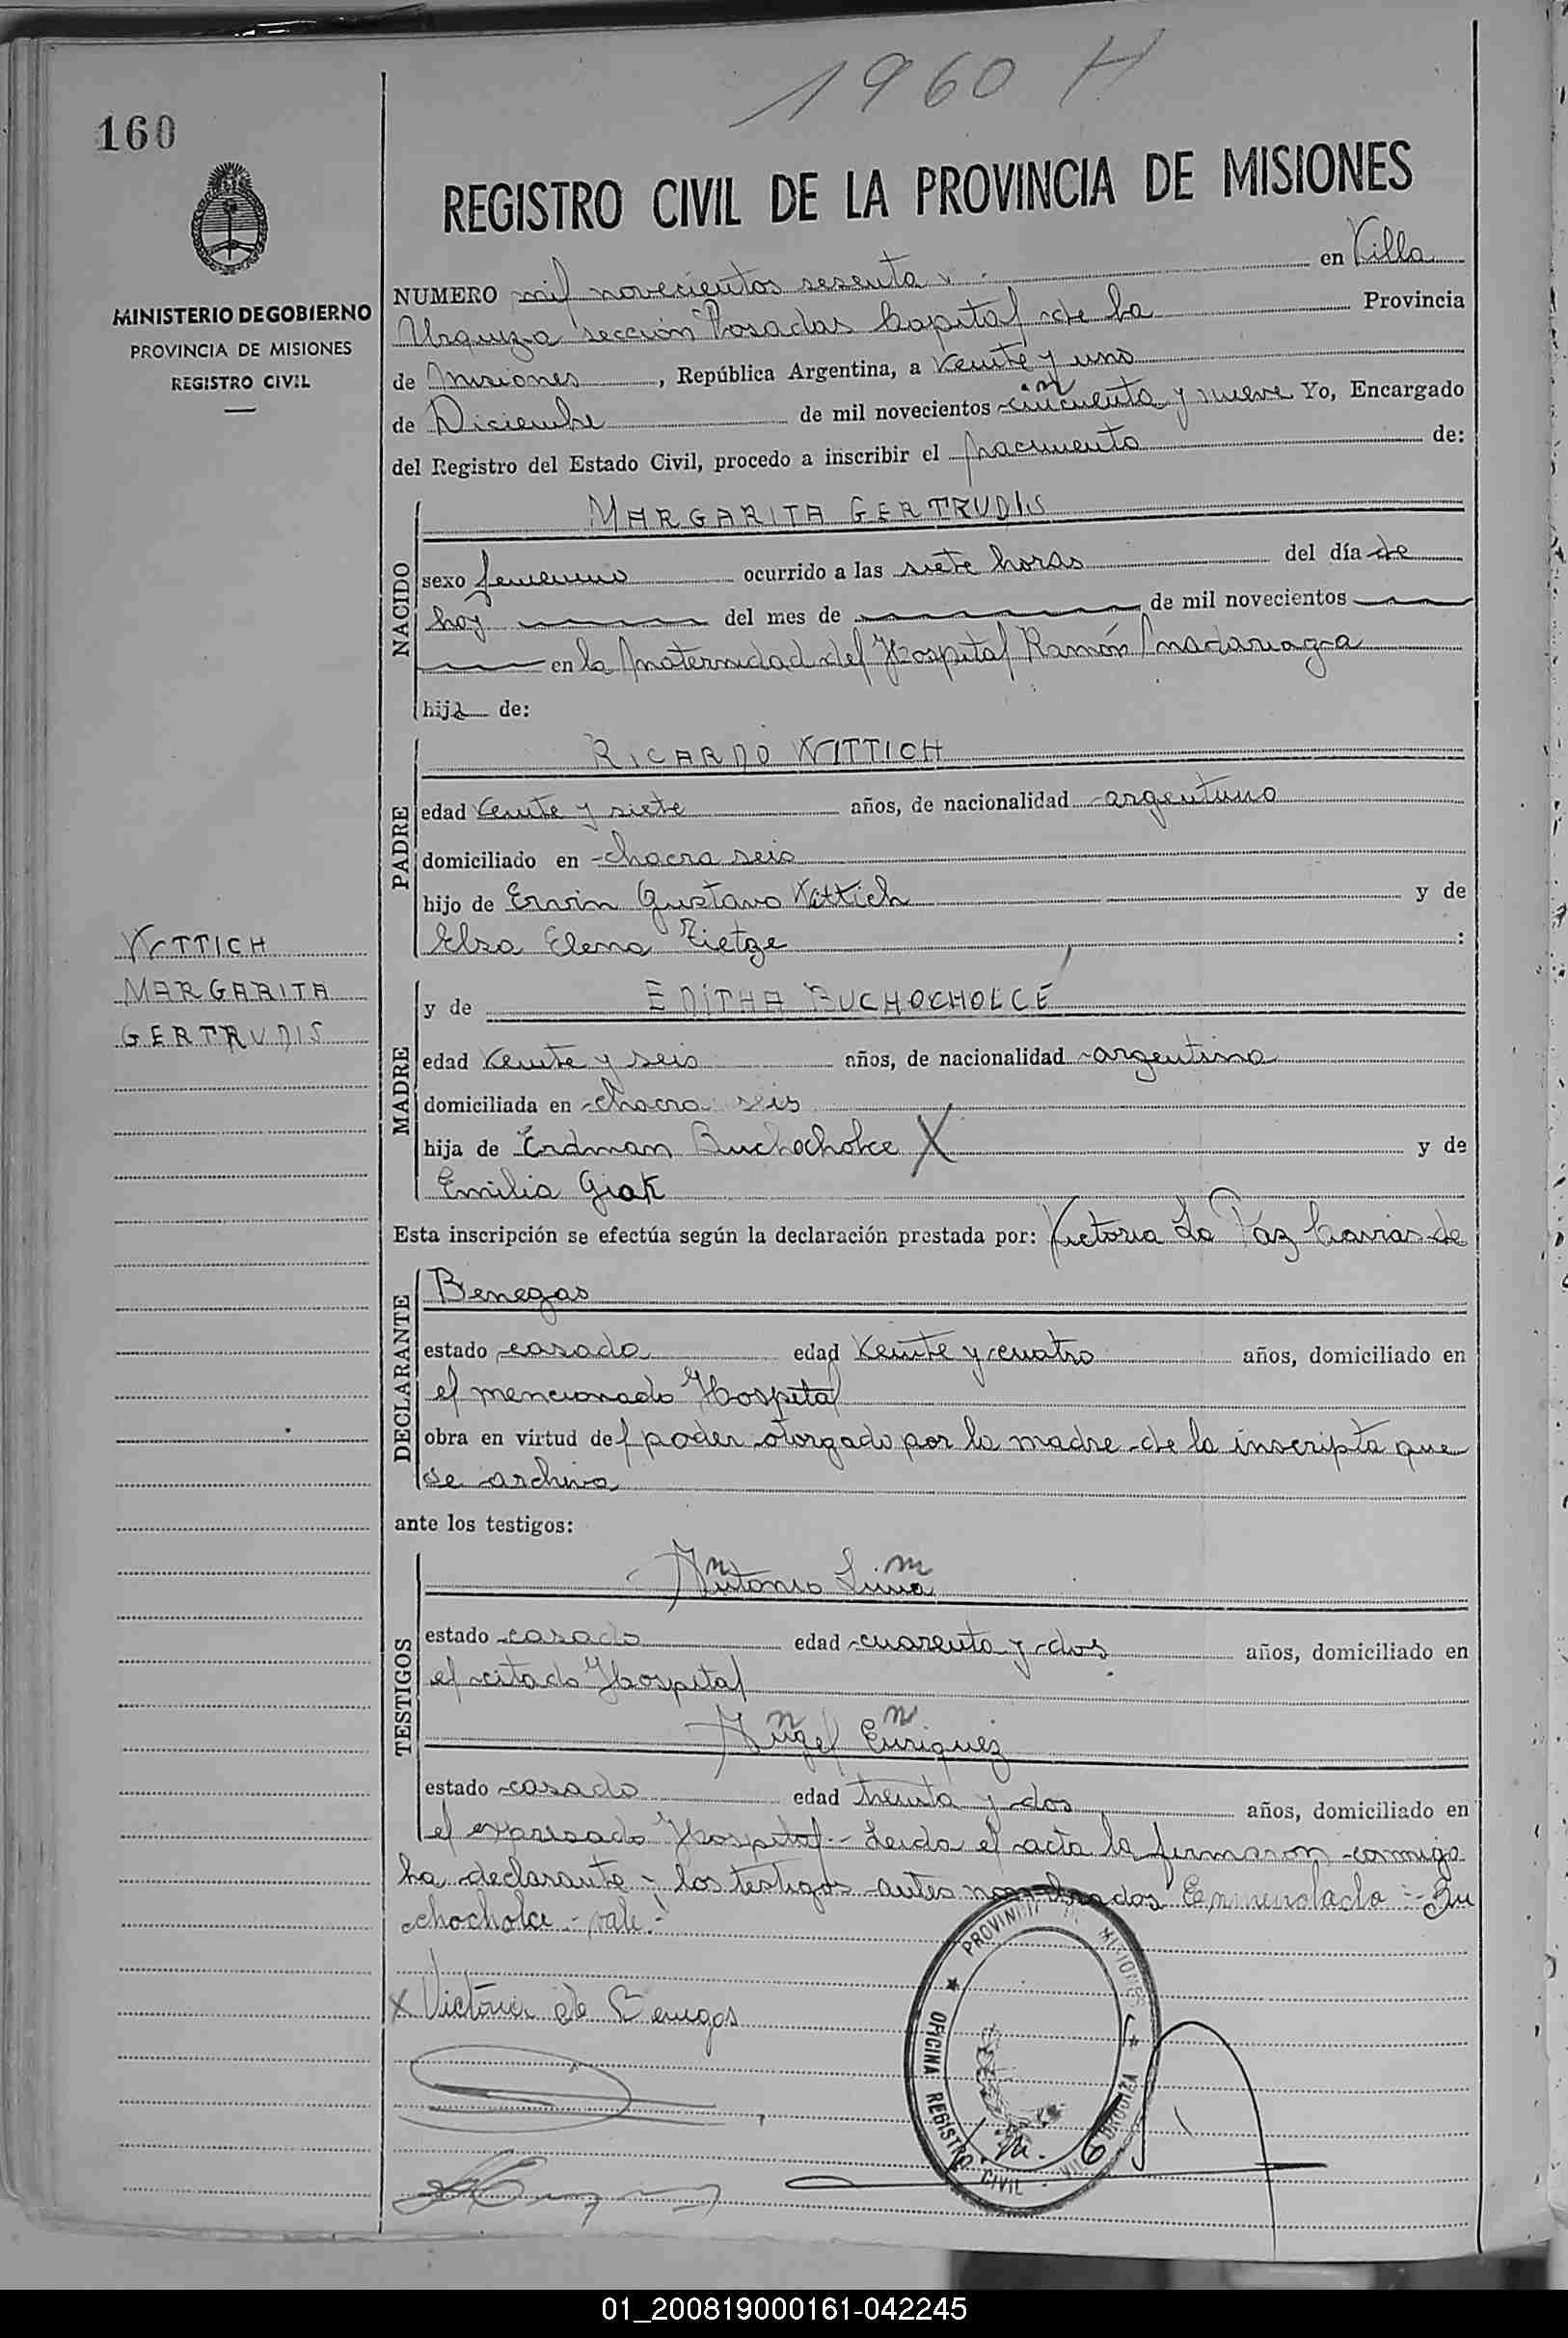 1960 H
160
REGISTRO CIVIL DE LA PROVINCIA DE MISIONES
MINISTERIO DE GOBIERNO
PROVINCIA DE MISIONES
REGISTRO CIVIL
NUMERO mil novecientos sesenta en Villa
Urquiza sección Posadas Capital de la Provincia
de Misiones, República Argentina, a veinte y uno
de Diciembre de mil novecientos cincuenta y nueve Yo, Encargado
del Registro del Estado Civil, procedo a inscribir el nacimiento de:
NACIDO
MARGARITA GERTRUDIS
sexo femenino ocurrido a las siete horas del día de
hoy del mes de de mil novecientos
en la Maternidad del Hospital Ramón Madariaga
hija de:
PADRE
RICARDO WITTICH
edad veinte y siete años, de nacionalidad argentino
domiciliado en chacra seis
hijo de Erwin Gustavo Wittich y de
Elsa Elena Tietze :
WITTICH
MARGARITA
GERTRUDIS
MADRE
y de EDITHA BUCHOCHOLCE
edad veinte y seis años, de nacionalidad argentina
domiciliada en chacra seis
hija de Erdman Buchocholce X y de
Emilia Giak
Esta inscripción se efectúa según la declaración prestada por: Victoria La Paz de
DECLARANTE
Benegas
estado casada edad veinte y cuatro años, domiciliado en
el mencionado Hospital
obra en virtud del poder otorgado por la madre de la inscripta que
se archiva
ante los testigos:
TESTIGOS
Antonio Lima
estado casado edad cuarenta y dos años, domiciliado en
el citado Hospital
Angel Enriquez
estado casado edad treinta y dos años, domiciliado en
el expresado Hospital.- Leida el acta la firmaron conmigo
la declarante y los testigos antes nombrados Enmendado:- Bu
chocholce.- vale.-
x Victoria de Benegas
PROVINCIA DE MISIONES
OFICINA REGISTRO CIVIL
VILLA URQUIZA
01_200819000161-042245